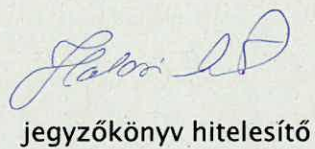 jegyzőkönyv hitelesítő